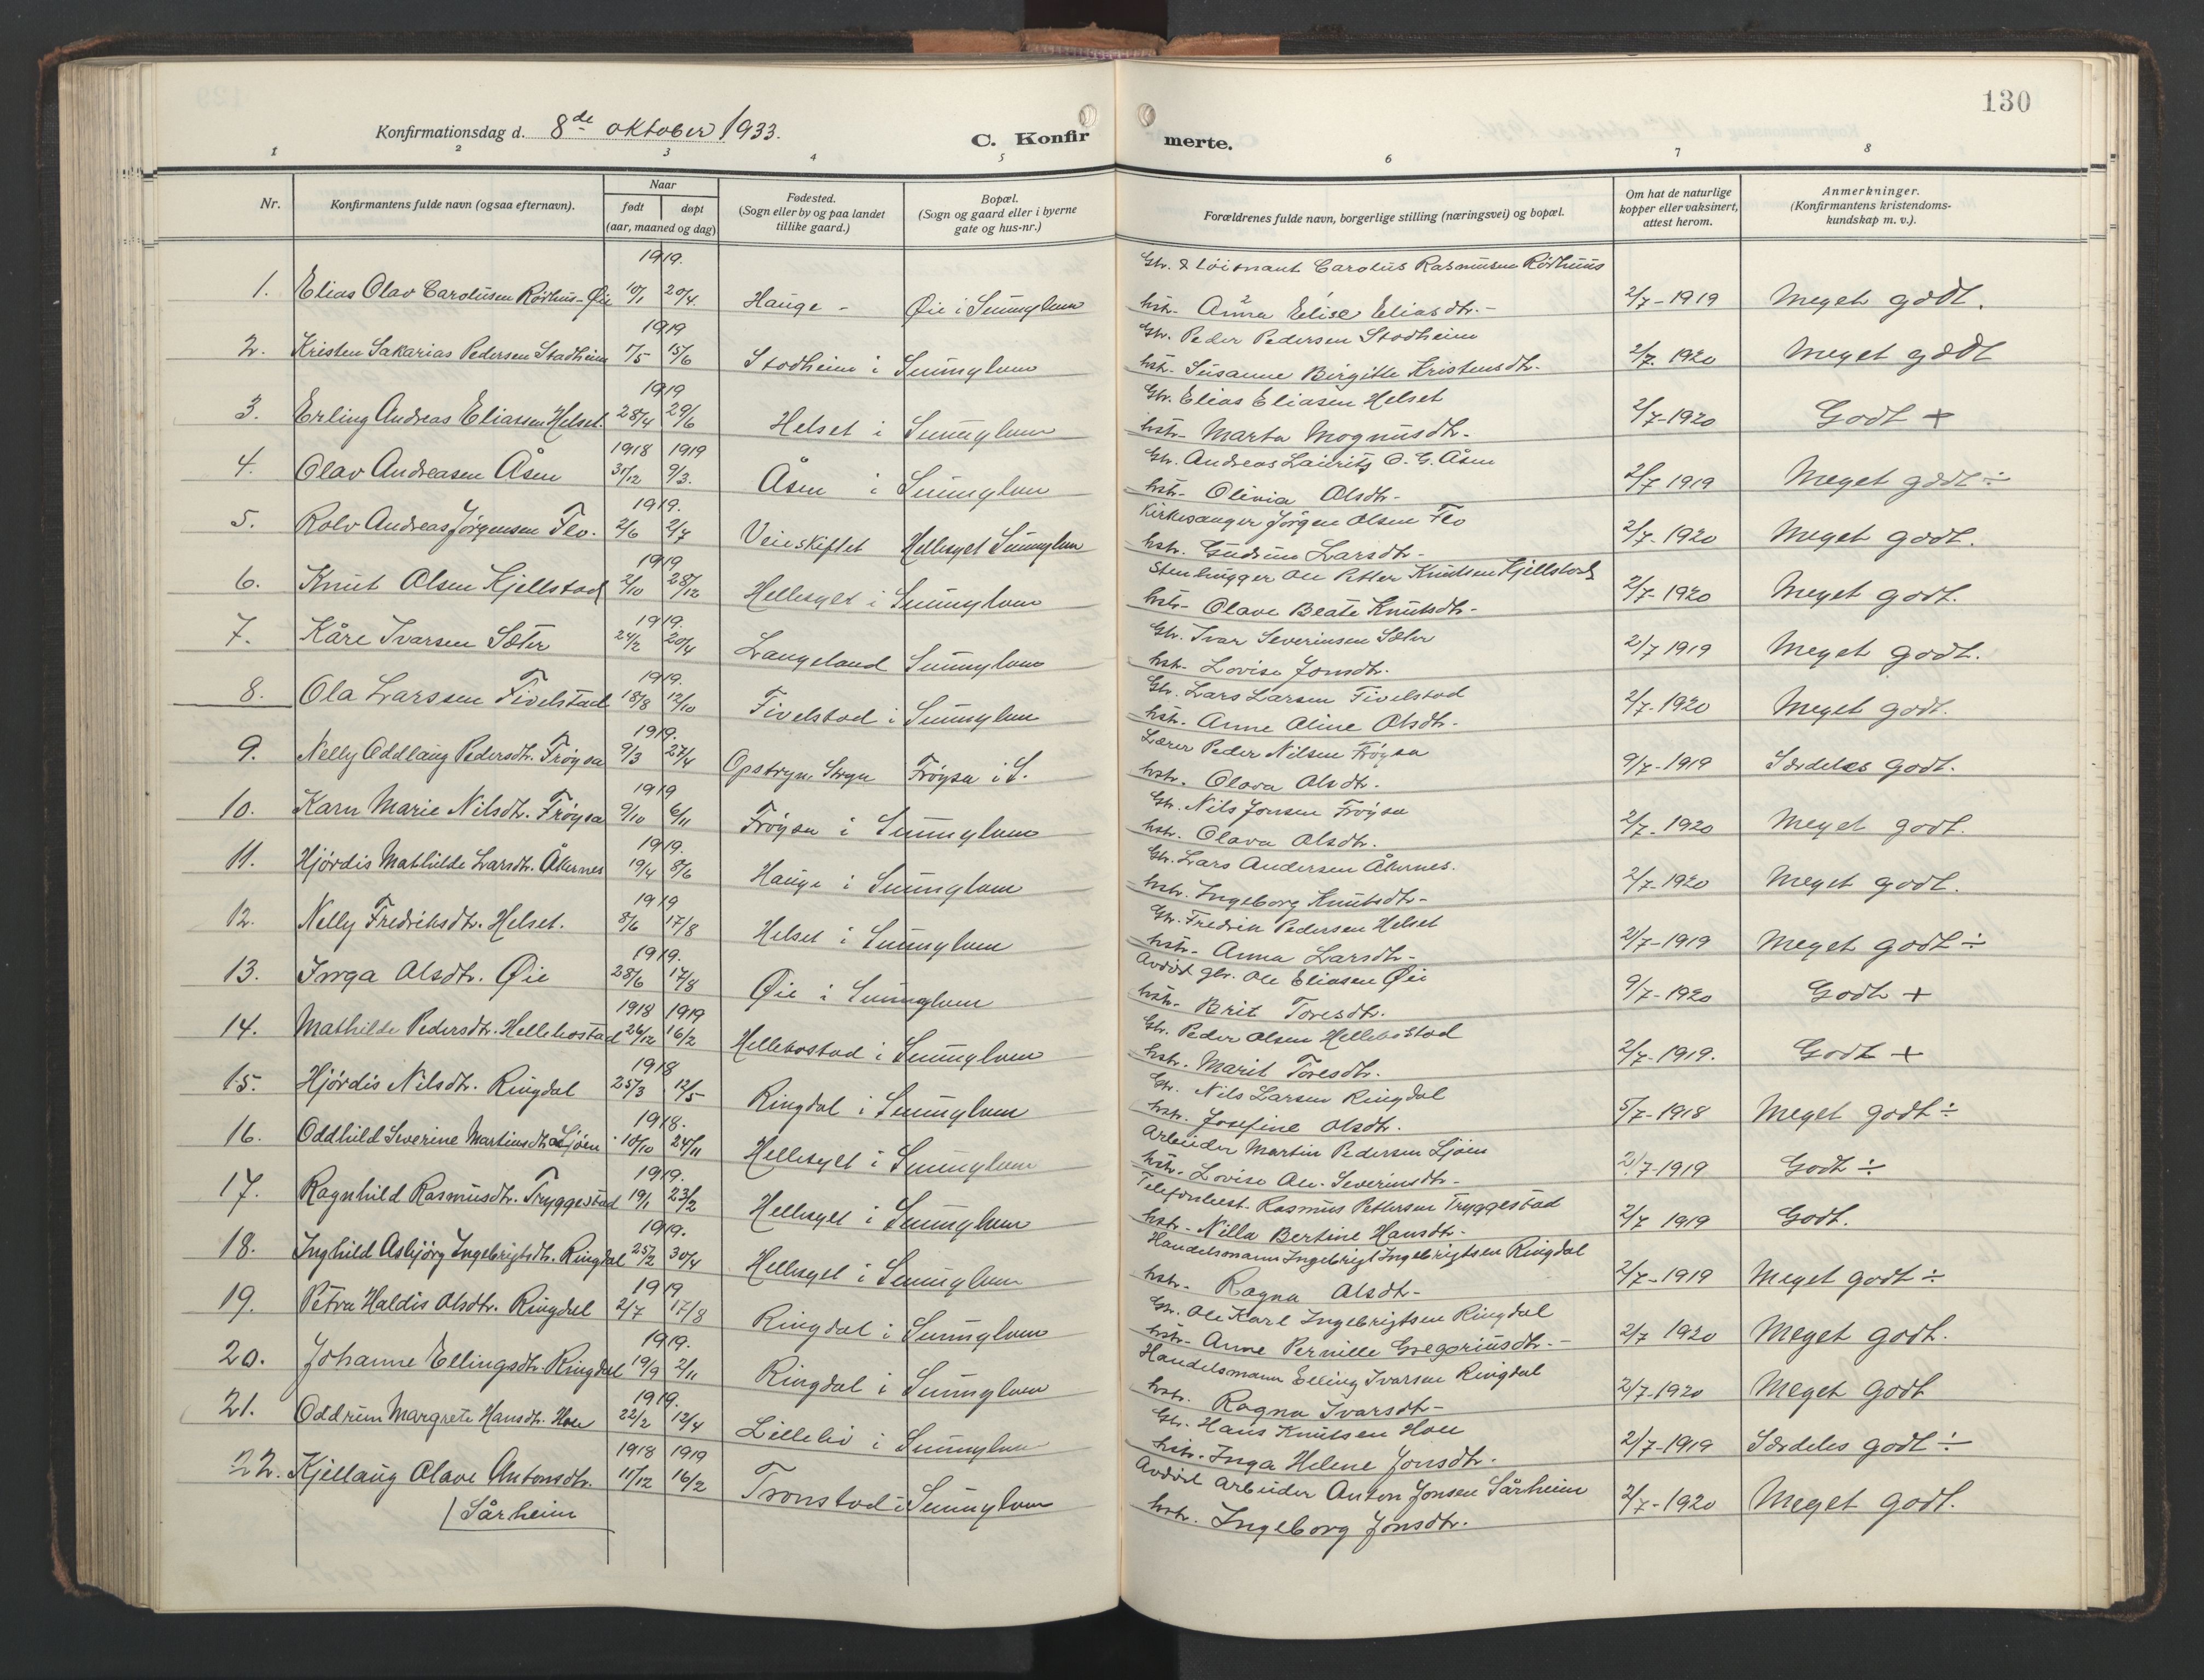 130
Konfirmationsdag d. 8de oktober 1933.
C. Konfirmerte.
1 2 3 4 5 6 7 8
Nr.
Konfirmantens fulde navn (ogsaa efternavn).
Naar
født døpt
(aar, maaned og dag)
Fødested.
(Sogn eller by og paa landet
tillike gaard.)
Bopæl.
(Sogn og gaard eller i byerne
gate og hus-nr.)
Forældrenes fulde navn, borgerlige stilling (næringsvei) og bopæl.
Om hat de naturlige
kopper eller vaksinert,
attest herom.
Anmerkninger.
(Konfirmantens kristendoms-
kundskap m. v.).
1919. Gbr. & Carolus Rasmusen Rödhuus
1. Elias Olav Carolusen Rödhus-Øie 10/1 20/4. Hauge - Øie i Sunnylven hstr. Anna Elise Eliasdtr. - 2/7-1919 Meget godt.
1919 Gbr. Peder Pedersen Stadheim
2. Kristen Sakarias Pedersen Stadheim 1/5 15/6 Stadheim i Sunnylven hstr. Susanne Birgitte Kristensdtr. 2/7. 1920 Meget godt
1919 Gbr. Elias Eliasen Helset
3. Erling Andreas Eliassen Helset. 28/4 29/6 Helset i Sunnylven hstr. Marta Mognusdtr. 2/7-1920 Godt +
1918 1919 Gbr. Andreas Laurits O. G. Åsen
4. Olav Andreasen Åsen 31/12 9/3. Åsen i Sunnylven hstr. Olivia Olsdtr. 2/7 1919 Meget godt ÷
1919. Kirkesanger Jörgen Olsen Flo
5. Rolv Andreas Jörgensen Flo. 2/6 2/7 Veieskiftet Hellesylt Sunnylven hstr. Gudrun Larsdtr. 2/7- 1920 Meget godt.
1919 Stenhugger Ole Petter Knudsen Kjellstad
6. Knut Olsen Kjellstad 2/10 28/12 Hellesylt i Sunnylven hstr. Olave Beate Knutsdtr. 2/7- 1920 Meget godt.
1919. Gbr. Ivar Severinsen Sæter
7. Kåre Ivarsen Sæter 24/2 20/4 Langeland Sunnylven hstr. Lovise Jonsdtr. 2/7 1919 Meget godt.
1919. Gbr. Lars Larsen Fivelstad
8. Ola Larssen Fivelstad 18/8 12/10 Fivelstad i Sunnylven hstr. Anne Oline Olsdtr. 2/7-1920 Meget godt.
1919. Lærer Peder Nilsen Fröysa
9. Nelly Oddlaug Pedersdtr. Fröysa 9/3 27/4 Opstryn Stryn Fröysa i S. hstr. Olava Olsdtr. 9/7-1919 Særdeles godt.
1919 Gbr. Nils Jonsen Fröysa
10. Karn Marie Nilsdtr. Fröysa 9/10 6/11 Fröysa i Sunnylven hstr. Olava Olsdtr. 2/7- 1920 Meget godt.
1919. Gbr. Lars Andersen Åkernes.
11. Hjördis Mathilde Larsdtr. Åkernes 19/4 8/6 Hauge i Sunnylven hstr. Ingeborg Knutsdtr. 2/7-1920 Meget godt.
1919 Gbr. Fredrik Pedersen Helset
12. Nelly Fredriksdtr. Helset. 8/6 17/8 Helset i Sunnylven hstr. Anna Larsdtr. 2/7-1919 Meget godt ÷
1919. Avdöd gbr. Ole Eliasen Øie
13. Inga Olsdtr. Øie 28/6 17/8 Øie i Sunnylven hstr. Brit Toresdtr. 9/7-1920 Godt +
1918 1919 Gbr. Peder Olsen Hellebostad
14. Mathilde Pedersdtr. Hellebostad 26/12 16/2 Hellebostad i Sunnylven hstr. Marit Toresdtr. 2/7-1919. Godt +
1918 Gbr. Nils Larsen Ringdal
15. Hjördis Nilsdtr. Ringdal 25/3 12/5 Ringdal i Sunnylven hstr. Josefine Olsdtr. 5/7-1918 Meget godt ÷
1918. Arbeider Martin Pedersen Ljöen
16. Oddhild Severine Martinsdtr. Ljöen 10/10 24/11 Hellesylt i Sunnylven hstr. Lovise Severinsdtr. 2/7-1919 Godt ÷
1919. Rasmus Pettersen Tryggestad
17. Ragnhild Rasmusdtr. Tryggestad 19/1 23/2 Hellesylt i Sunnylven hstr. Nilla Bertine Hansdtr. 2/7 1919 Godt.
1919. Handelsmann Ingebrigt Ingebrigtsen Ringdal
18. Inghild Asbjörg Ingebrigtsdtr. Ringdal 25/2 30/4 Hellesylt i Sunnylven hstr. Ragna Olsdtr. 2/7-1919 Meget godt ÷
1919 Gbr. Ole Karl Ingebrigtsen Ringdal
19. Petra Haldis Olsdtr. Ringdal 2/7 17/8 Ringdal i Sunnylven hstr. Anne Pernille Gregoriusdtr. - 2/7 1920 Meget godt.
1919. Handelsmann Elling Ivarsen Ringdal
20. Johanne Ellingsdtr. Ringdal 19/9 2/11 Ringdal i Sunnylven hstr. Ragna Ivarsdtr. 2/7-1920 Meget godt
1919. Gbr. Hans Knutsen Hole
21. Oddrun Margrete Hansdtr. Hole 22/2 12/4 Lillebö i Sunnylven hstr. Inga Helene Jonsdtr. 2/7-1919 Særdeles godt ÷
1918 1919 Avdöd arbeider Anton Jonsen Sårheim
22. Kjellaug Olave Antonsdtr. 11/12 16/2 Tronstad i Sunnylven hstr. Ingeborg Jonsdtr. 2/7-1920 Meget godt.
Sårheim